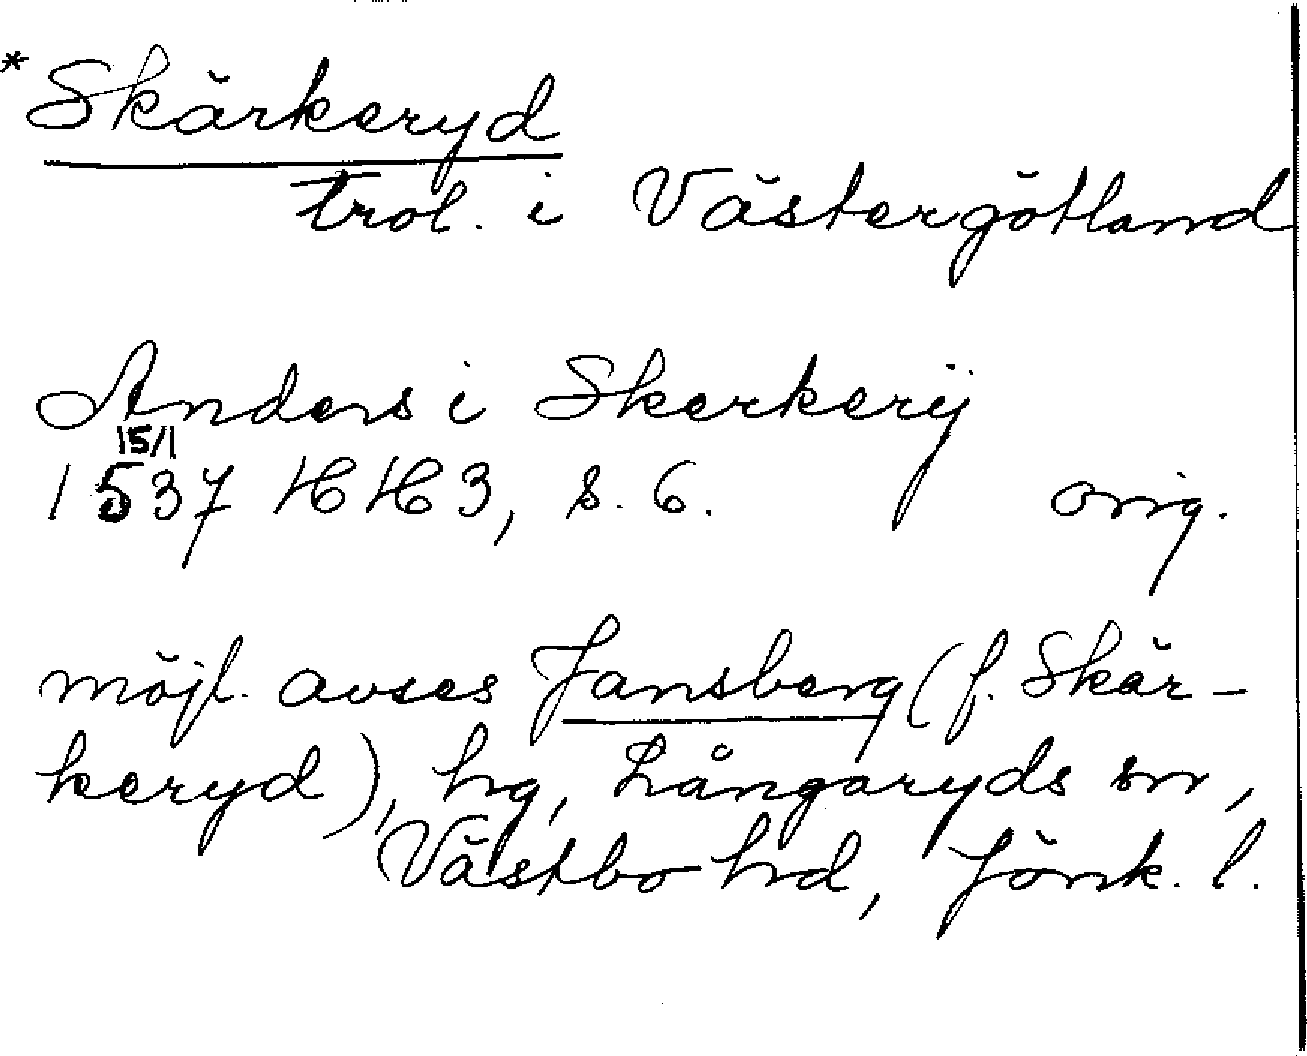 *Skärkeryd
trol. i Västergötland
Anders i Skerkerÿ
15/1
1537 HH3, s. 6. orig.
möjl. avses Jansberg (f. Skär-
keryd), hg, Långaryds sn,
Västbo hd, Jönk. l.